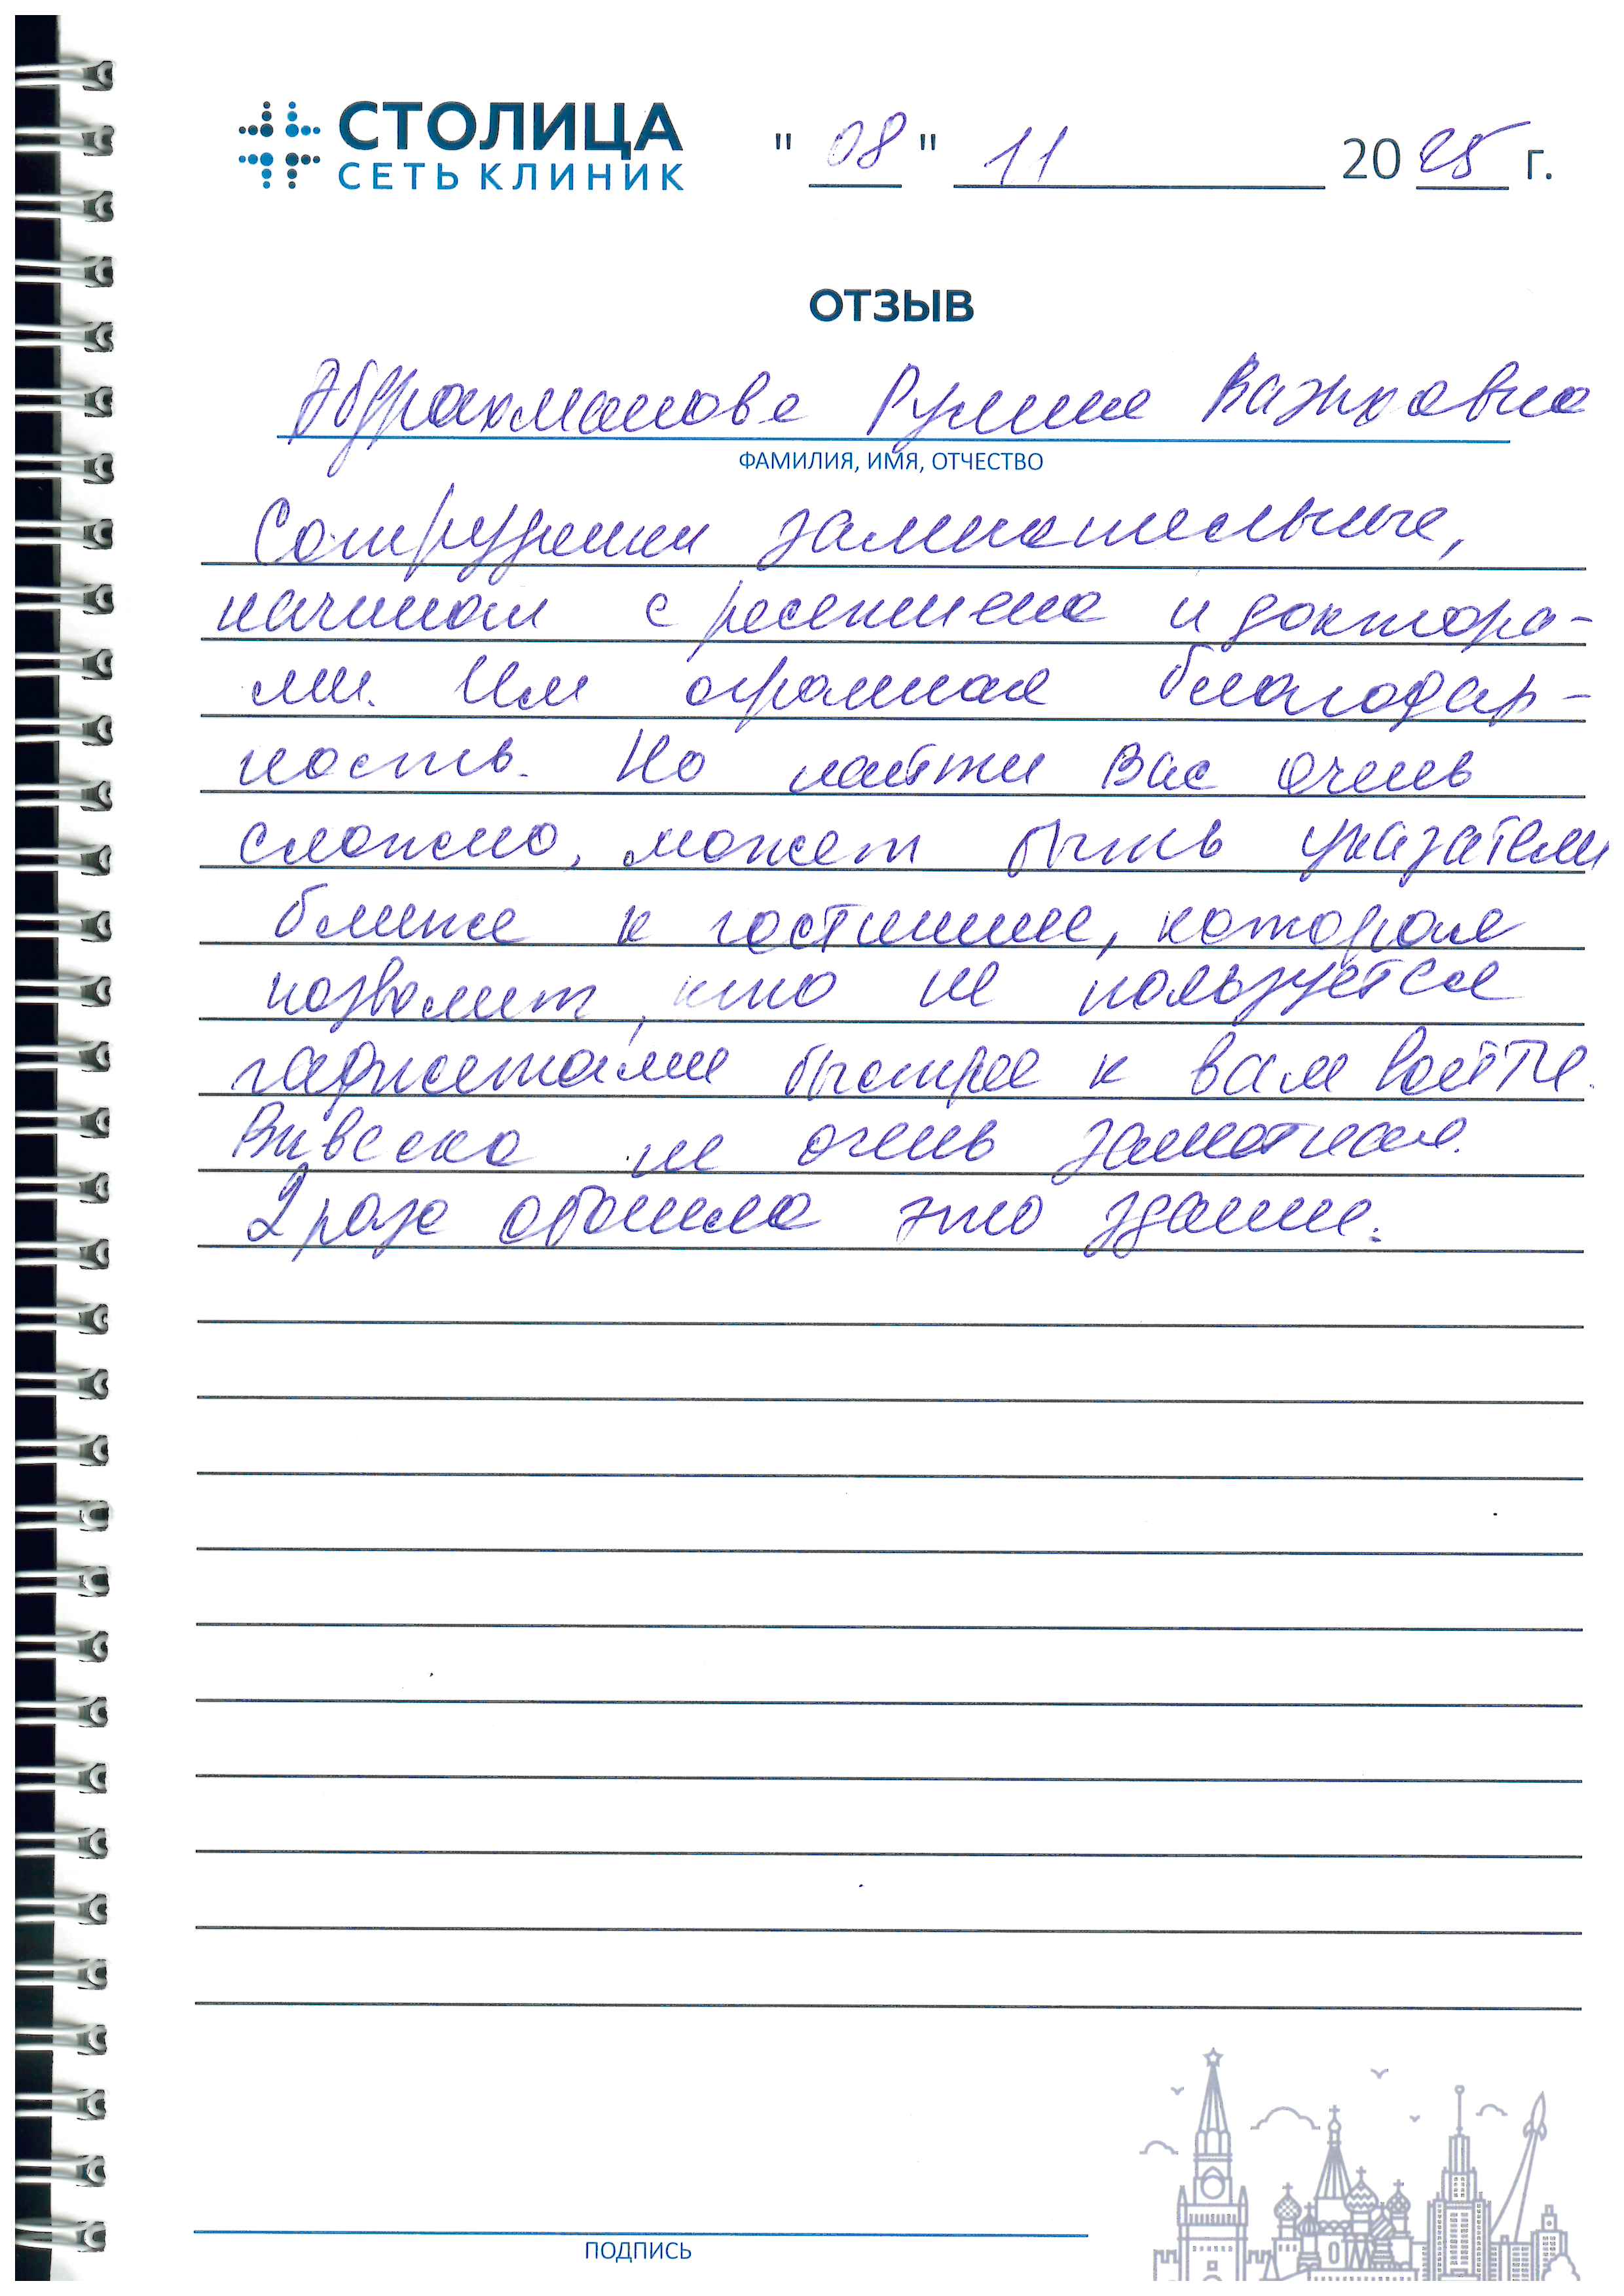 СТОЛИЦА
СЕТЬ КЛИНИК
" 08 " 11 2025 г.
ОТЗ�ыВ
Абдрахманова Румия
ФАМИЛИЯ, ИМЯ, ОТЧЕСТВО
Сотрудники замечательные,
начиная с ресепшена и доктора-
ми. Им огромная благодар-
ность. Но найти Вас очень
сложно, может быть указатели
ближе к гостинице, которая
позволит, кто не пользуется
гаджетами быстрее к вам войти.
Вывеска не очень заметная.
2 раза обошла это здание.
ПОДПИСЬ